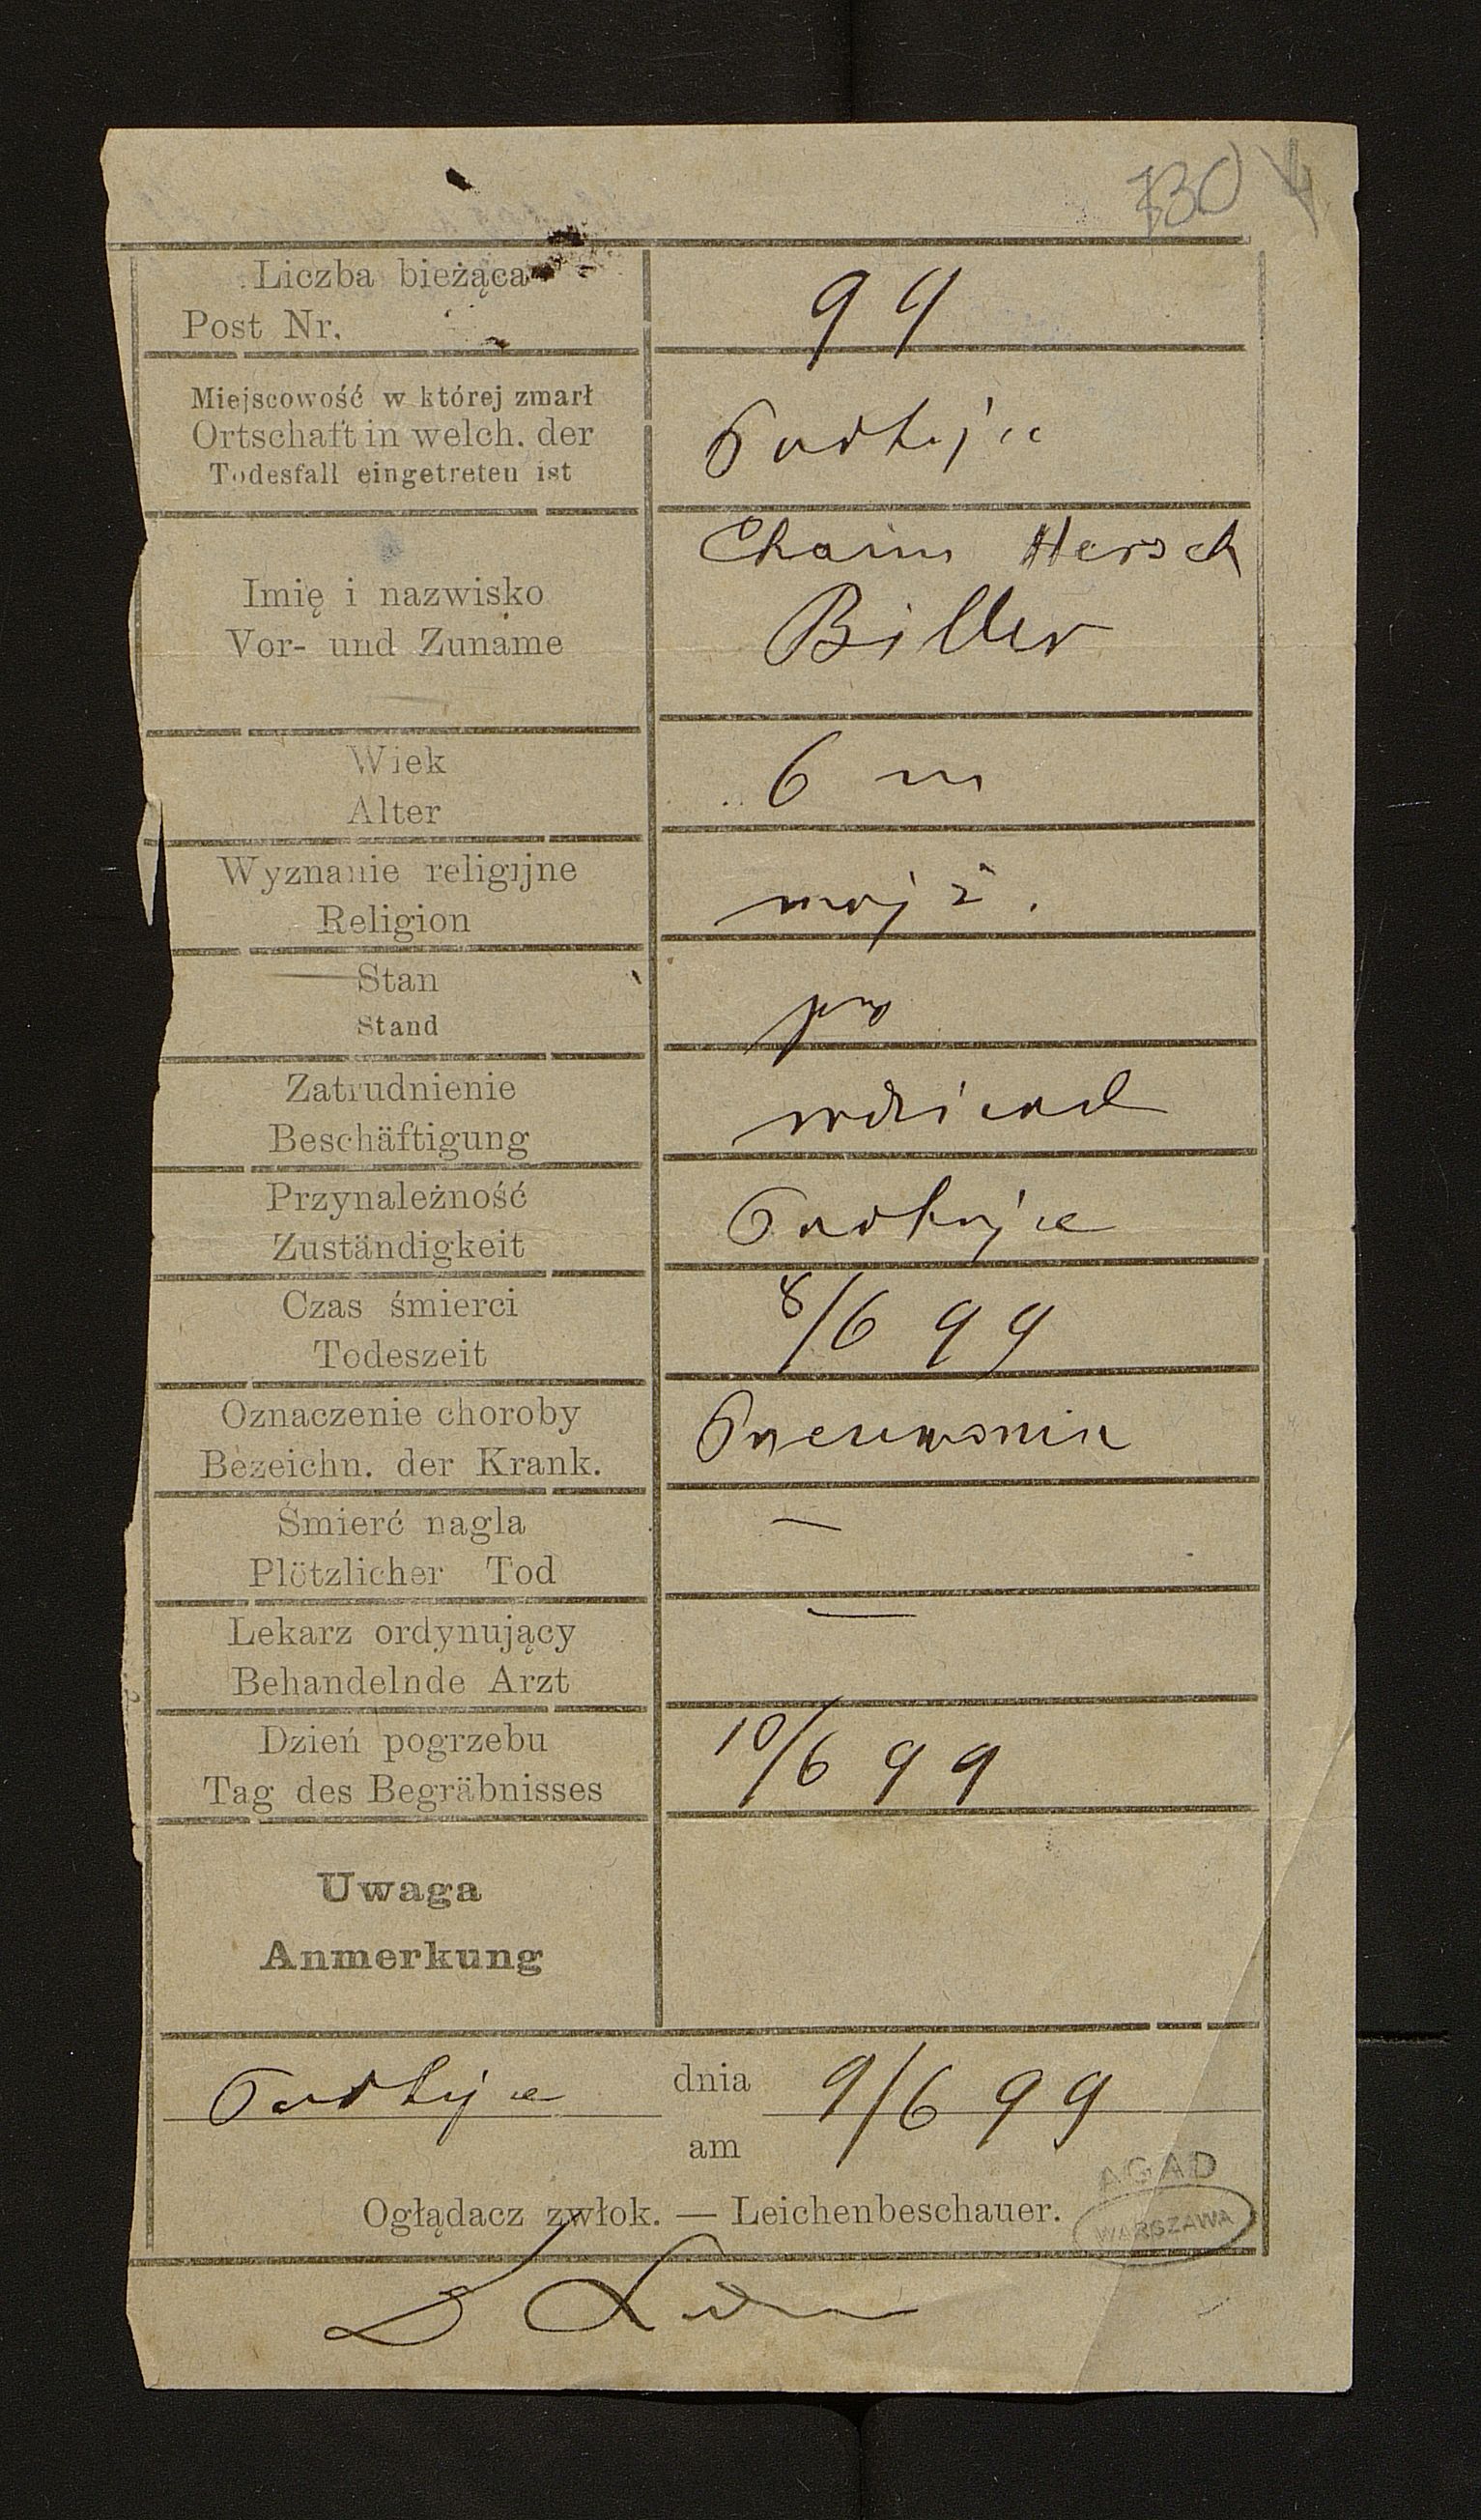 730
Liczba bieżąca
Post Nr.
99
Miejscowość w której zmarł
Ortschaft in welch. der
Todesfall eingetreten ist
Podhajce
Imię i nazwisko
Vor- und Zuname
Chaim Hersch
Biller
Wiek
Alter
6 m
Wyznanie religijne
Religion
mojż.
Stan
Stand
Zatrudnienie
Beschäftigung
Przynależność
Zuständigkeit
Podhajce
Czas śmierci
Todeszeit
8/6 99
Oznaczenie choroby
Bezeichn. der Krank.
Pneumonia
Śmierć nagla
Plötzlicher Tod
—
Lekarz ordynujący
Behandelnde Arzt
—
Dzień pogrzebu
Tag des Begräbnisses
10/6 99
Uwaga
Anmerkung
Podhajce dnia 9/6 99
am
Oglądacz zwłok. — Leichenbeschauer.
AGAD
WARSZAWA